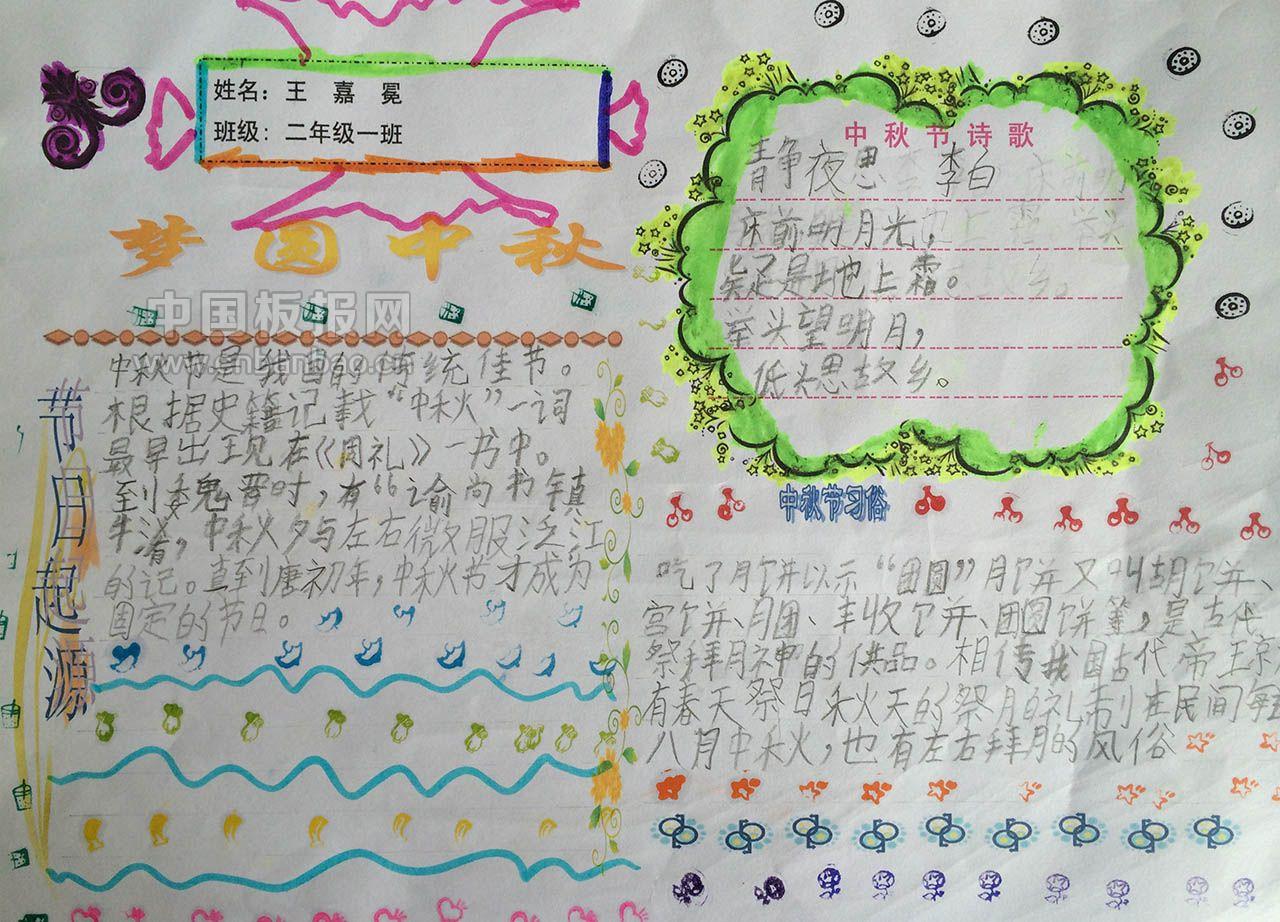 姓名：王 嘉 冕
班级：二年级一班
梦圆中秋
中国板报网
www.cnbanbao.com
节日起源
中秋节是我国的传统佳节。
根据史籍记载“中秋”一词
最早出王现在《周礼》一书中。
到魏晋时，有“谕尚书镇
牛渚，中秋夕与左右微服泛江
的记。直到唐初年，中秋节才成为
固定的节日。
中秋节诗歌
静夜思 李白
床前明月光，
疑是地上霜。
举头望明月，
低头思故乡。
中秋节习俗
吃了月饼以示“团圆”月饼又叫胡饼、
宫饼、月团、丰收饼、团圆饼等，是古代
祭拜月神的供品。相传我国古代帝王京
有春天祭日秋天的祭月的礼制在民间每
八月中秋，也有左右拜月的风俗